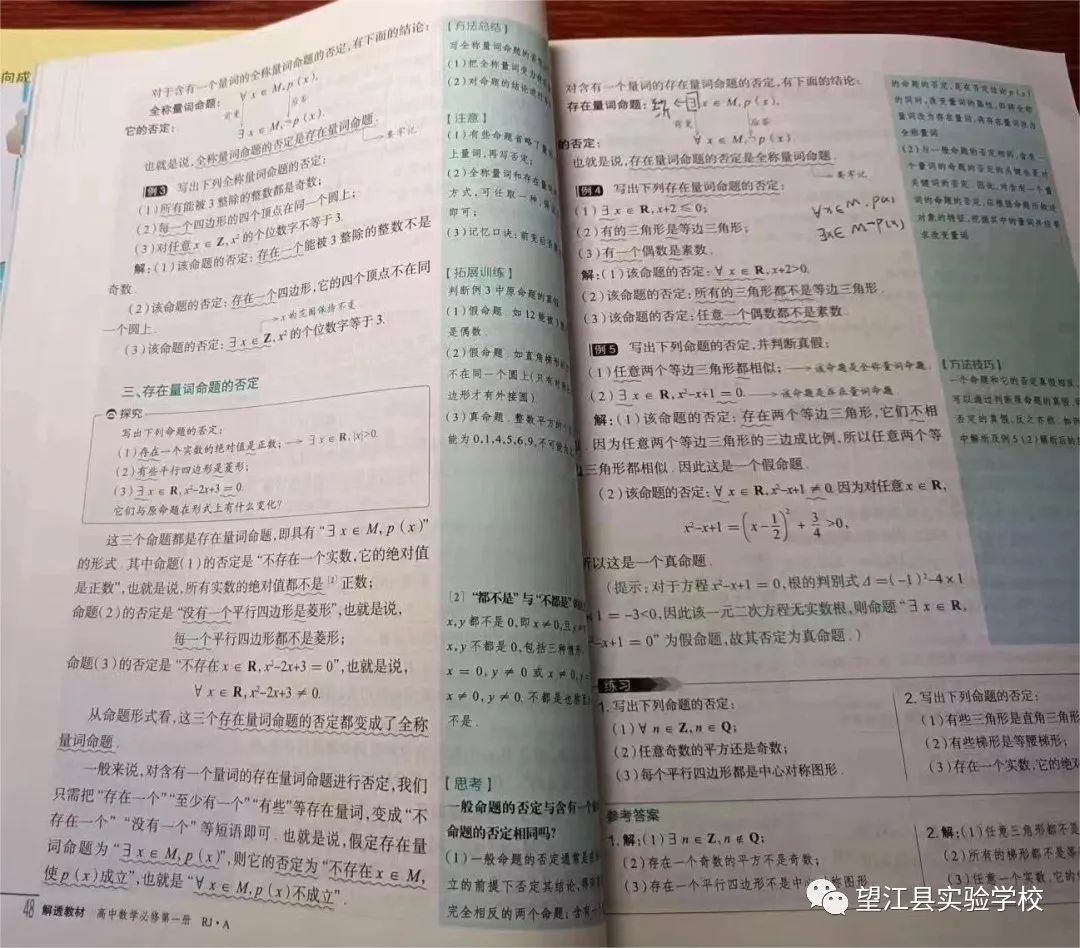 向成
对于含有一个量词的全称量词命题的否定,有下面的结论:
全称量词命题: ∀ x ∈ M, p(x),
它的否定: 前变 后否
∃ x ∈ M, ¬p(x).
也就是说,全称量词命题的否定是存在量词命题.
要牢记
例3 写出下列全称量词命题的否定:
(1)所有能被3整除的整数都是奇数;
(2)每一个四边形的四个顶点在同一个圆上;
(3)对任意 x ∈ Z, x²的个位数字不等于3.
解:(1)该命题的否定:存在一个能被3整除的整数不是
奇数.
(2)该命题的否定:存在一个四边形,它的四个顶点不在同
一个圆上.
x的范围保持不变
(3)该命题的否定:∃ x ∈ Z, x²的个位数字等于3.
三、存在量词命题的否定
探究
写出下列命题的否定:
(1)存在一个实数的绝对值是正数; ∃ x ∈ R, |x|>0.
(2)有些平行四边形是菱形;
(3)∃ x ∈ R, x²-2x+3 = 0.
它们与原命题在形式上有什么变化?
这三个命题都是存在量词命题,即具有“∃ x ∈ M, p(x)”
的形式. 其中命题(1)的否定是“不存在一个实数,它的绝对值
是正数”,也就是说,所有实数的绝对值都不是[2]正数;
命题(2)的否定是“没有一个平行四边形是菱形”,也就是说,
每一个平行四边形都不是菱形;
命题(3)的否定是“不存在 x ∈ R, x²-2x+3 = 0”,也就是说,
∀ x ∈ R, x²-2x+3 ≠ 0.
从命题形式看,这三个存在量词命题的否定都变成了全称
量词命题.
一般来说,对含有一个量词的存在量词命题进行否定,我们
只需把“存在一个”“至少有一个”“有些”等存在量词,变成“不
存在一个”“没有一个”等短语即可. 也就是说,假定存在量
词命题为“∃ x ∈ M, p(x)”,则它的否定为“不存在 x ∈ M,
使 p(x)成立”,也就是“∀ x ∈ M, p(x)不成立”.
48 解透教材 高中数学必修第一册 RJ·A
【方法总结】
写全称量词命题的
(1)把全称量词
(2)对命题的结论
【注意】
(1)有些命题省略了
上量词,再写否定;
(2)全称量词和存在量
方式,可任取一种,
即可;
(3)记忆口诀:前变后
【拓展训练】
判断例3中原命题的真假
(1)假命题. 如12能被
是偶数.
(2)假命题. 如直角梯形
不在同一个圆上(只有
边形才有外接圆)
(3)真命题. 整数平方的
能为0,1,4,5,6,9,不可能
[2]“都不是”与“不都是”
x,y都不是0,即 x≠0,且
x,y不都是0,包括三种情形
x = 0, y ≠ 0 或 x ≠ 0,
x ≠ 0, y ≠ 0. 不都是也
不是.
【思考】
一般命题的否定与含有一个
命题的否定相同吗?
(1)一般命题的否定通常是
立的前提下否定其结论,得
完全相反的两个命题;含有一
对含有一个量词的存在量词命题的否定,有下面的结论:
存在量词命题: ∃ x ∈ M, p(x),
前变 后否
的否定: ∀ x ∈ M, ¬p(x)
也就是说,存在量词命题的否定是全称量词命题.
要牢记
例4 写出下列存在量词命题的否定:
(1)∃ x ∈ R, x+2 ≤ 0;
(2)有的三角形是等边三角形;
(3)有一个偶数是素数.
∀x∈M, p(x)
∃x∈M ¬p(x)
解:(1)该命题的否定:∀ x ∈ R, x+2>0.
(2)该命题的否定:所有的三角形都不是等边三角形.
(3)该命题的否定:任意一个偶数都不是素数.
例5 写出下列命题的否定,并判断真假:
(1)任意两个等边三角形都相似; 该命题是全称量词命题
(2)∃ x ∈ R, x²-x+1 = 0. 该命题是存在量词命题
解:(1)该命题的否定:存在两个等边三角形,它们不相
. 因为任意两个等边三角形的三边成比例,所以任意两个等
三角形都相似. 因此这是一个假命题.
(2)该命题的否定:∀ x ∈ R, x²-x+1 ≠ 0. 因为对任意 x ∈ R,
x²-x+1 = (x-1/2)² + 3/4 >0,
所以这是一个真命题.
(提示:对于方程 x²-x+1 = 0,根的判别式 Δ =(-1)²-4×1
1 = -3<0,因此该一元二次方程无实数根,则命题“∃ x ∈ R,
x²-x+1 = 0”为假命题,故其否定为真命题.)
的命题的否定,是在否定结论p(x)
的同时,改变量词的属性,即将全称
量词改为存在量词,将存在量词改为
全称量词.
(2)与一般命题的否定相同,含有一
个量词的命题的否定的关键也是对
关键词的否定. 因此,对含有一个量
词的命题的否定,应根据命题所叙述
对象的特征,挖掘其中的量词并根据
求改变量词.
【方法技巧】
一个命题和它的否定真假相反,
可以通过判断原命题的真假,
否定的真假,反之亦然. 如例
中解析及例5(2)解析后的
练习
1.写出下列命题的否定:
(1)∀ n ∈ Z, n ∈ Q;
(2)任意奇数的平方还是奇数;
(3)每个平行四边形都是中心对称图形.
2.写出下列命题的否定:
(1)有些三角形是直角三角形
(2)有些梯形是等腰梯形;
(3)存在一个实数,它的绝对
参考答案
1.解:(1)∃ n ∈ Z, n ∉ Q;
(2)存在一个奇数的平方不是奇数;
(3)存在一个平行四边形不是中心对称图形.
2.解:(1)任意三角形都不是
(2)所有的梯形都不是等
(3)任意一个实数,它的绝
望江县实验学校